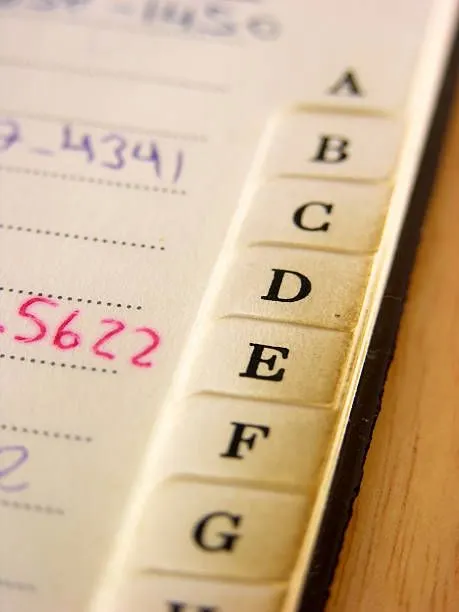 -1450
7-4341
-5622
2
A
B
C
D
E
F
G